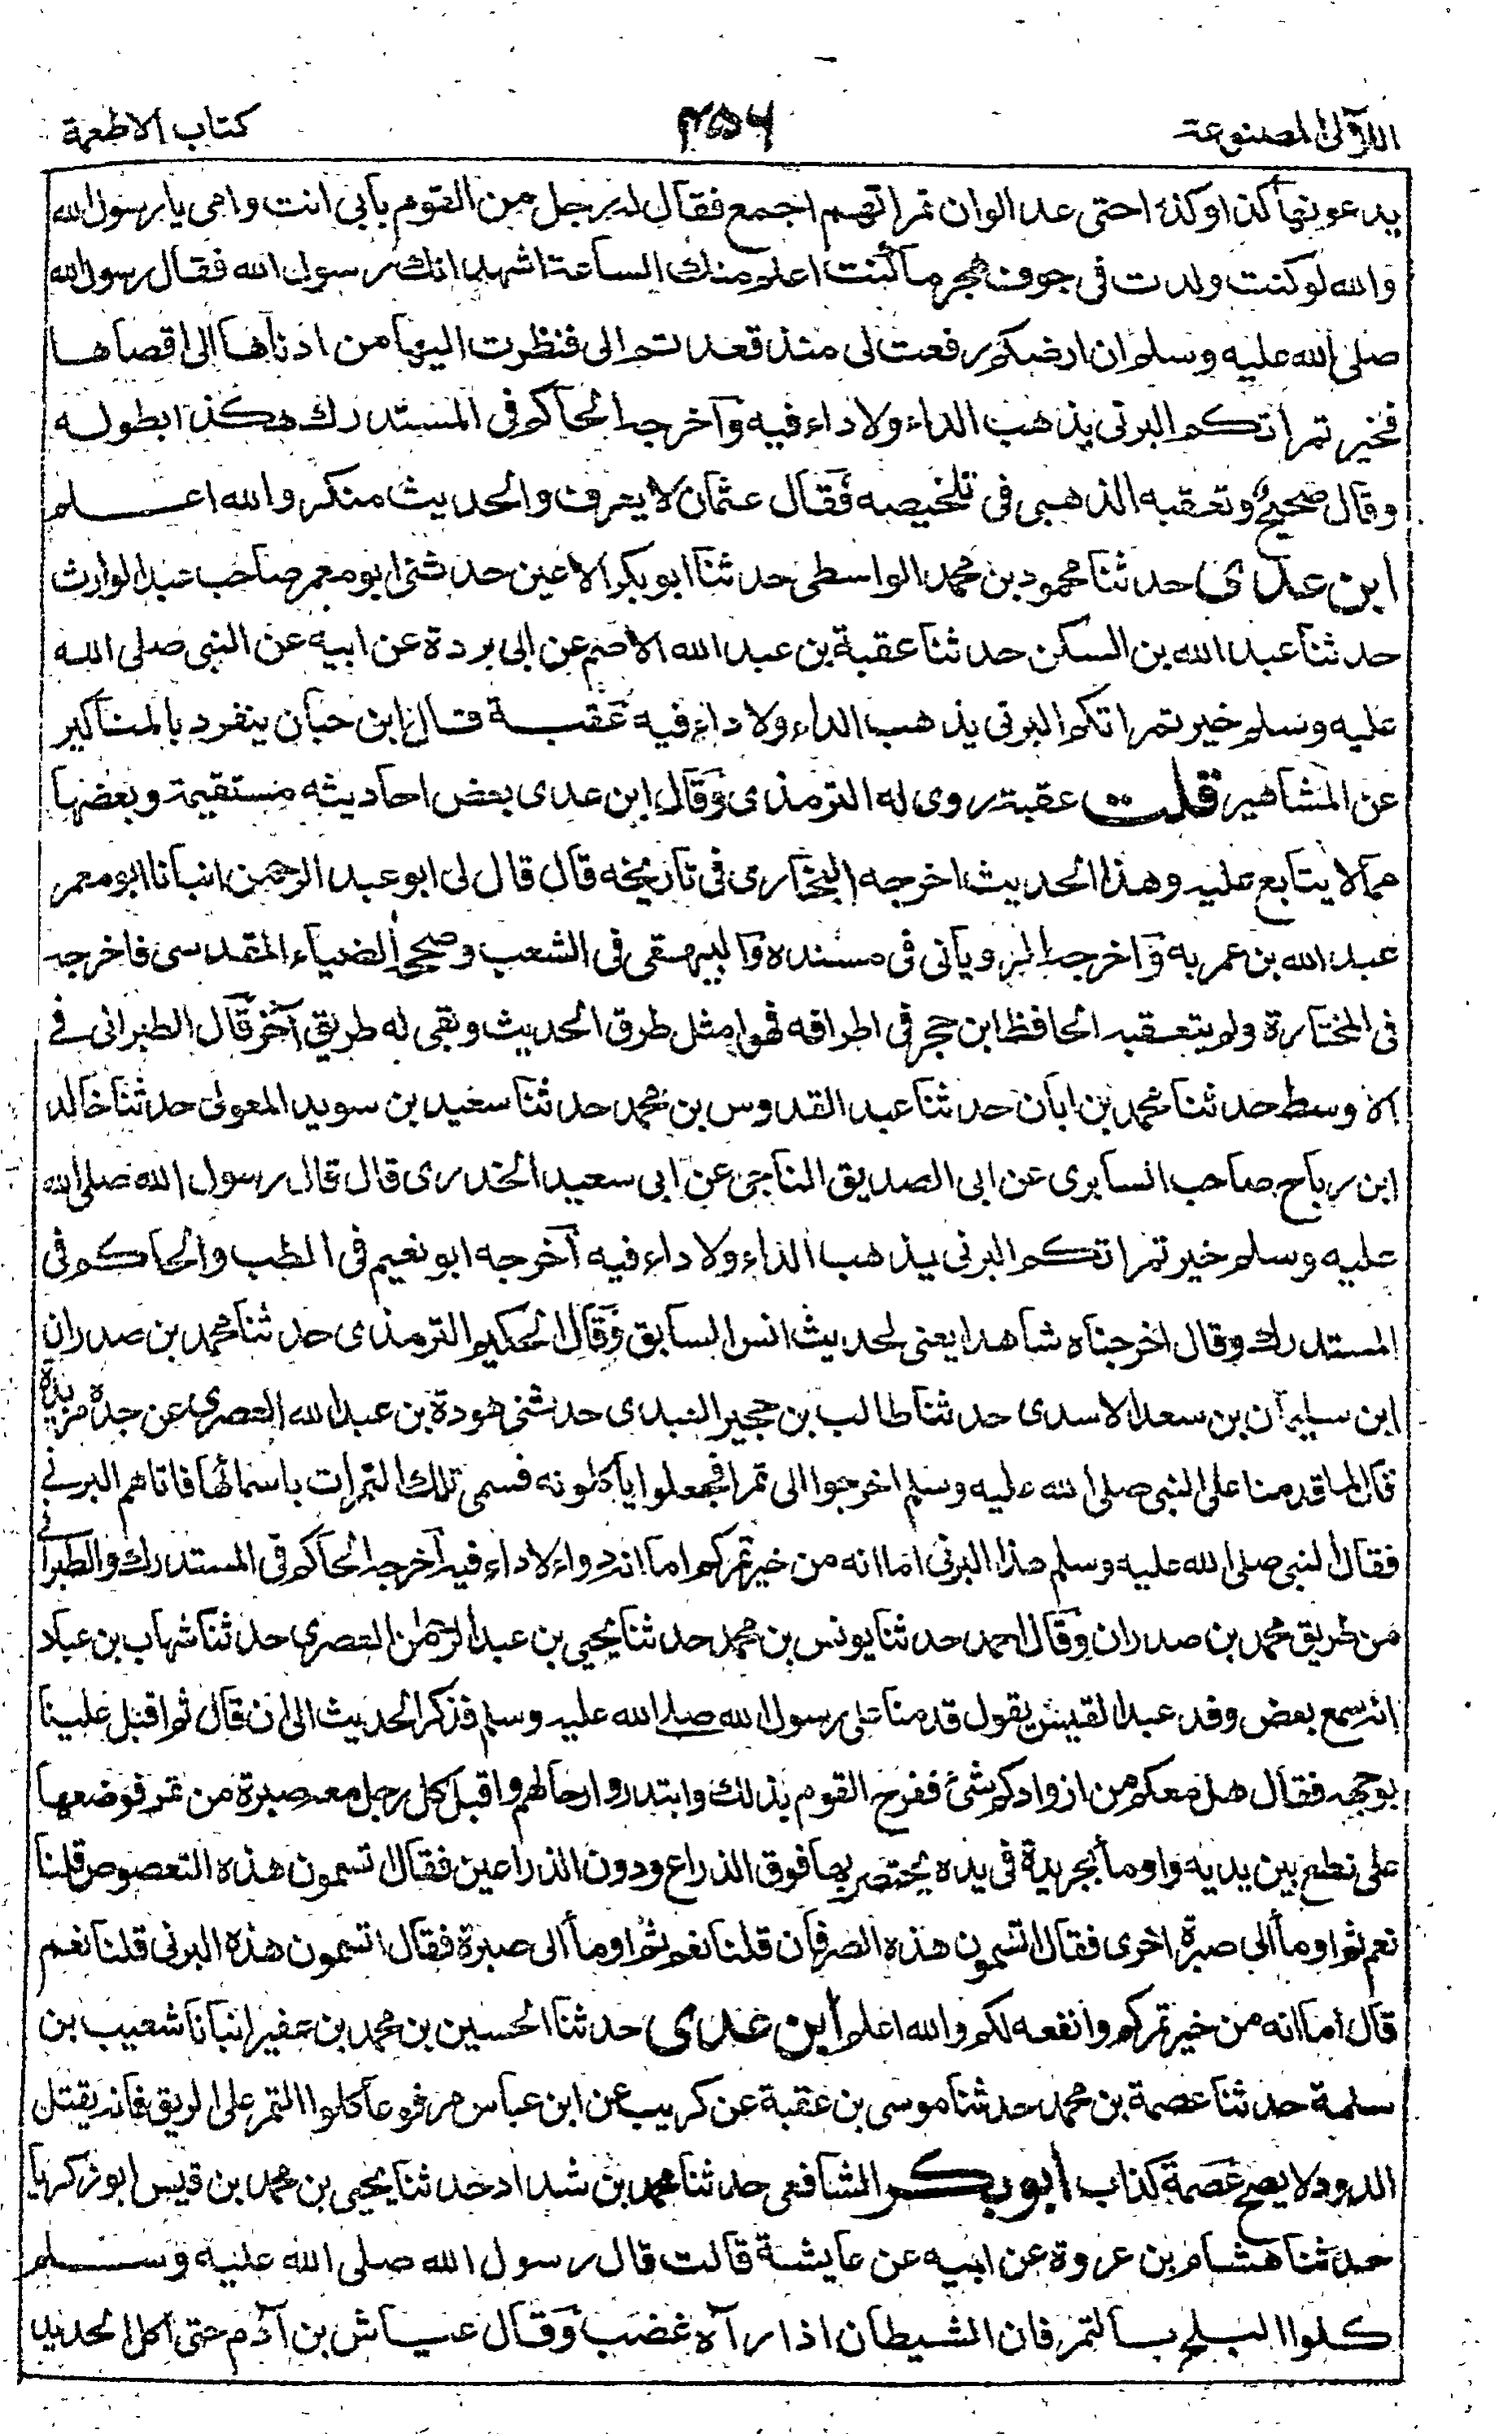 اللآلى المصنوعة
٤٥٦
كتاب الاطعمة
يدعونها كذا وكذا حتى عد الوان تمراتهم اجمع فقال له رجل من القوم بأبي انت وامي يا رسول الله
والله لو كنت ولدت في جوف هجر ما كنت اعلم منك الساعة اشهد انك رسول الله فقال رسول الله
صلى الله عليه وسلم ان ارضكم رفعت لى منذ قعدتم الى فنظرت اليها من ادناها الى اقصاها
فخير تمراتكم البرنى يذهب الداء ولا داء فيه وآخرجه الحاكم فى المستدرك هكذا بطوله
وقال صحيح وتعقبه الذهبى فى تلخيصه فقال عثمان لا يعرف والحديث منكر والله اعلم
ابن عدى حدثنا محمود بن محمد الواسطى حدثنا ابو بكر الاعين حدثنى ابو معمر صاحب عبد الوارث
حدثنا عبد الله بن السكن حدثنا عقبة بن عبد الله الاصم عن ابى بردة عن ابيه عن النبى صلى الله
عليه وسلم خير تمراتكم البرنى يذهب الداء ولا داء فيه عقبة قال ابن حبان ينفرد بالمناكير
عن المشاهير قلت عقبة روى له الترمذى وقال ابن عدى بعض احاديثه مستقيمة وبعضها
مما لا يتابع عليه وهذا الحديث اخرجه البخارى فى تاريخه قال قال لى ابو عبد الرحمن انبانا ابو معمر
عبد الله بن عمر به وآخرجه الرويانى فى مسنده والبيهقى فى الشعب وصححه الضياء المقدسى فاخرجه
فى المختارة ولم يتعقبه الحافظ ابن حجر فى اطرافه فهو امثل طرق الحديث وبقى له طريق آخر قال الطبرانى فے
الاوسط حدثنا محمد بن ابان حدثنا عبد القدوس بن محمد حدثنا سعيد بن سويد المعولى حدثنا خالد
ابن رباح صاحب السابرى عن ابى الصديق الناجى عن ابى سعيد الخدرى قال قال رسول الله صلى الله
عليه وسلم خير تمراتكم البرنى يذهب الداء ولا داء فيه آخرجه ابو نعيم فى الطب والحاكم فى
المستدرك وقال اخرجناه شاهدا يعنى لحديث انس السابق وقال الحكيم الترمذى حدثنا محمد بن صدران
ابن سليمان بن سعد الاسدى حدثنا طالب بن حجير العبدى حدثنى هودة بن عبد الله العصرى عن جده مزيدة
قال لما قدمنا على النبى صلى الله عليه وسلم اخرجوا الى تمرا فجعلوا ياكلونه فسمى تلك التمرات باسمائها فاتاهم البرنے
فقال النبى صلى الله عليه وسلم هذا البرنى اما انه من خير تمركم اما انه دواء لا داء فيه آخرجه الحاكم فى المستدرك والطبرانے
من طريق محمد بن صدران وقال احمد حدثنا يونس بن محمد حدثنا يحيى بن عبد الرحمن العصرى حدثنا شهاب بن عباد
انه سمع بعض وفد عبد القيس يقول قدمنا على رسول الله صلى الله عليه وسلم فذكر الحديث الى ان قال ثم اقبل علينا
بوجهه فقال هل معكم من ازوادكم شئ ففرح القوم بذلك وابتدروا رحالهم واقبل كل رجل معه صبرة من تمر فوضعها
على نطع بين يديه واومأ بجريدة فى يده يختصر بها فوق الذراع ودون الذراعين فقال اتسمون هذه التعضوض قلنا
نعم ثم اومأ الى صبرة اخرى فقال اتسمون هذه الصرفان قلنا نعم ثم اومأ الى صبرة فقال اتسمون هذه البرنى قلنا نعم
قال اما انه من خير تمركم وانفعه لكم والله اعلم ابن عدى حدثنا الحسين بن محمد بن عفير انبانا شعيب بن
سلمة حدثنا عصمة بن محمد حدثنا موسى بن عقبة عن كريب عن ابن عباس مرفوعا كلوا التمر على الريق فانه يقتل
الدود لا يصح عصمة كذاب أبو بكر الشافعى حدثنا محمد بن شداد حدثنا يحيى بن محمد بن قيس ابو زكريا
حدثنا هشام بن عروة عن ابيه عن عايشة قالت قال رسول الله صلى الله عليه وسلم
كلوا البلح بالتمر فان الشيطان اذا رآه غضب وقال عـاش بن آدم حتى اكل الجديد